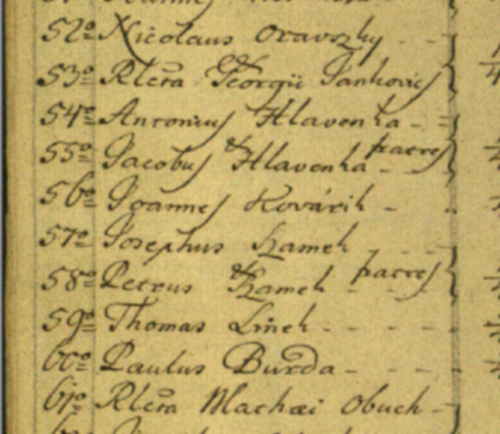 52º Nicolaus Oravszky
53º Rlcta Georgii Jankovics
54º Antonius Hlavenka
55º Jacobus Hlavenka fratres
56º Joannes Kovácik
57º Josephus Hamek
58º Petrus Hamek fratres
59º Thomas Linek
60º Paulus Burda
61º Rlcta Mathæi Obuch